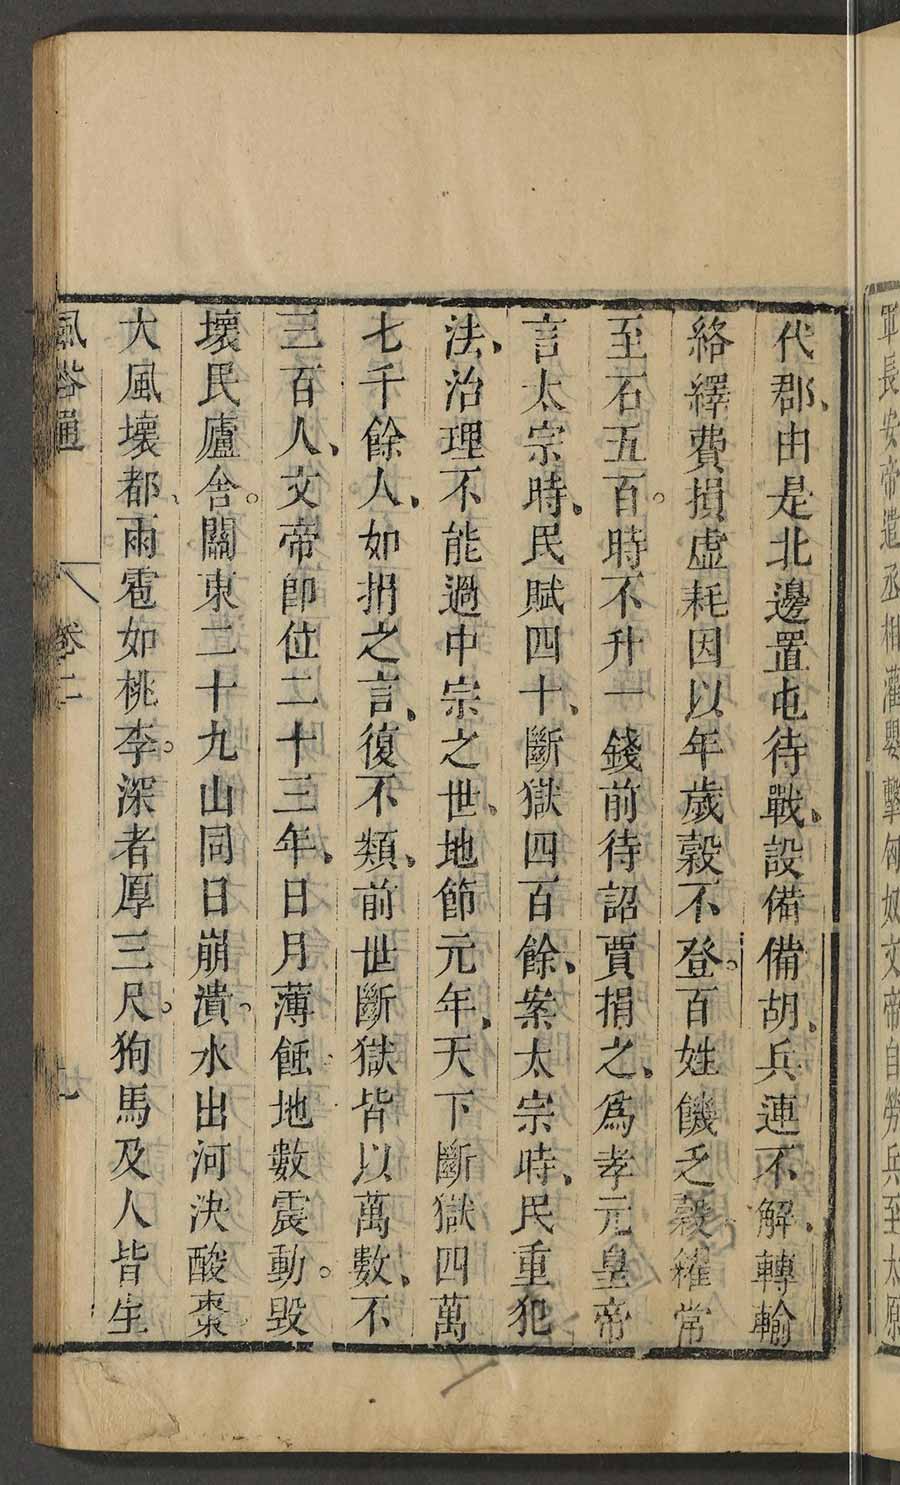 軍長安帝遣丞相灌嬰擊匈奴文帝自勞兵至太原
代郡、由是北邊置屯待戰、設備備胡、兵連不解、轉輸
絡繹費損虛耗因以年歲穀不登。百姓饑乏穀糴常
至石五百。時不升一錢前待詔賈捐之、為孝元皇帝
言太宗時、民賦四十、斷獄四百餘、案太宗時、民重犯
法、治理不能過中宗之世、地節元年、天下斷獄四萬
七千餘人、如捐之言、復不類、前世斷獄皆以萬數、不
三百人、文帝即位二十三年、日月薄蝕地數震動。毀
壞民廬舍。關東二十九山同日崩潰。水出河決酸棗
大風壞都、雨雹如桃李。深者厚三尺。狗馬及人皆生
風俗通 卷二 九